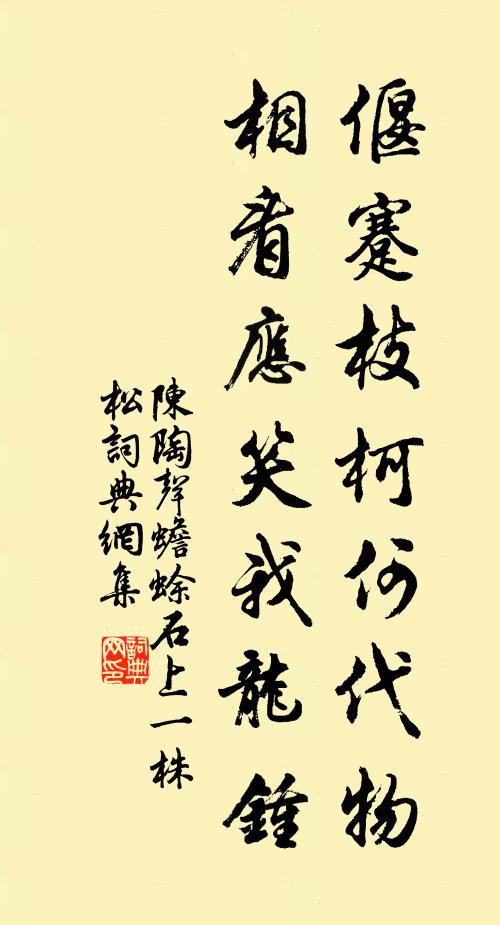 偃蹇枝柯何代物
相看應笑我龍鍾
陳陶聲蟾蜍石上一株
松詞典網集
詞典网印